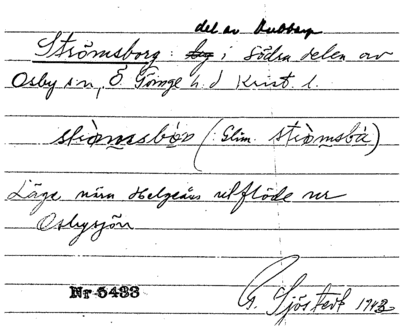 del av Hubbarp
Strömsborg: i södra delen av
Osby sn, Ö. Göinge h.d Krist. l.
strömsbor (: Glim. strömsbå)
Läge nära Helgeåns utflöde ur
Osbysjön
Nr 5433
G. Sjöstedt 1943